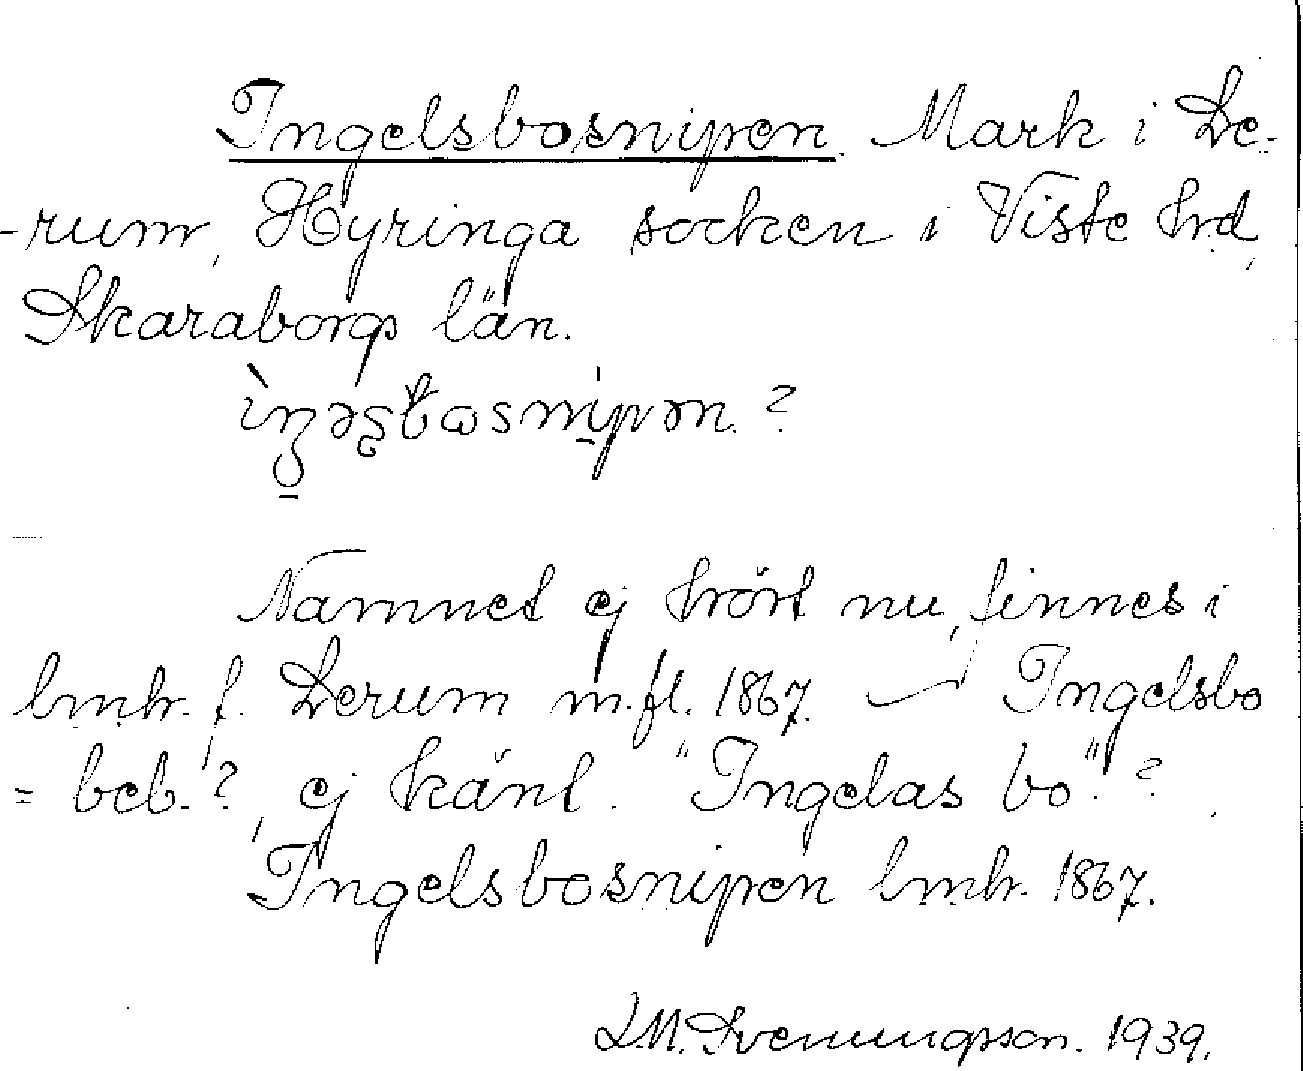 Ingelsbosnipen. Mark i De-
-rum, Hyringa socken i Viste hrd,
Skaraborgs län.
?
Namnet ej hört nu, finnes i
lmhr. f. Derum m.fl. 1867. — Ingelsbo
= beb.?, ej känt. "Ingelas bo".?
Ingelsbosnipen lmhr. 1867.
L.M. Svenungsson. 1939.